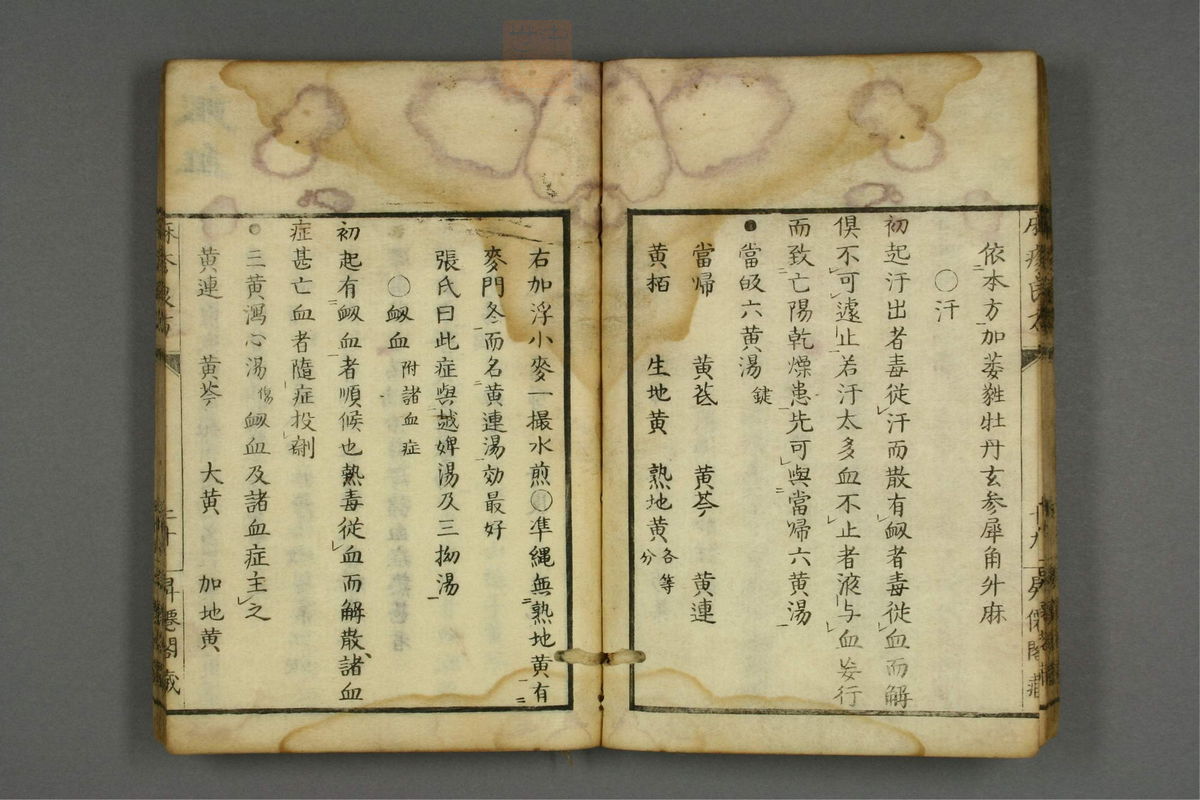 依本方加萎蕤牡丹玄参犀角升麻
〇汗
初起汗出者毒從汗而散有衂者毒從血而解
俱不可遽止若汗太多血不止者液与血妄行
而致亡陽乾燥患先可與當帰六黄湯
●當皈六黄湯 鍵
當帰 黄芪 黄芩 黄連
黄栢 生地黄 熟地黄 各等分
右加浮小麥一撮水煎〇準縄無熟地黄有
麥門冬而名黄連湯効最好
張氏曰此症與越婢湯及三拗湯
〇衂血 附諸血症
初起有衂血者順候也熱毒従血而解散諸血
症甚亡血者隨症投劑
三黄瀉心湯 傷 衂血及諸血症主之
黄連 黄芩 大黄 加地黄